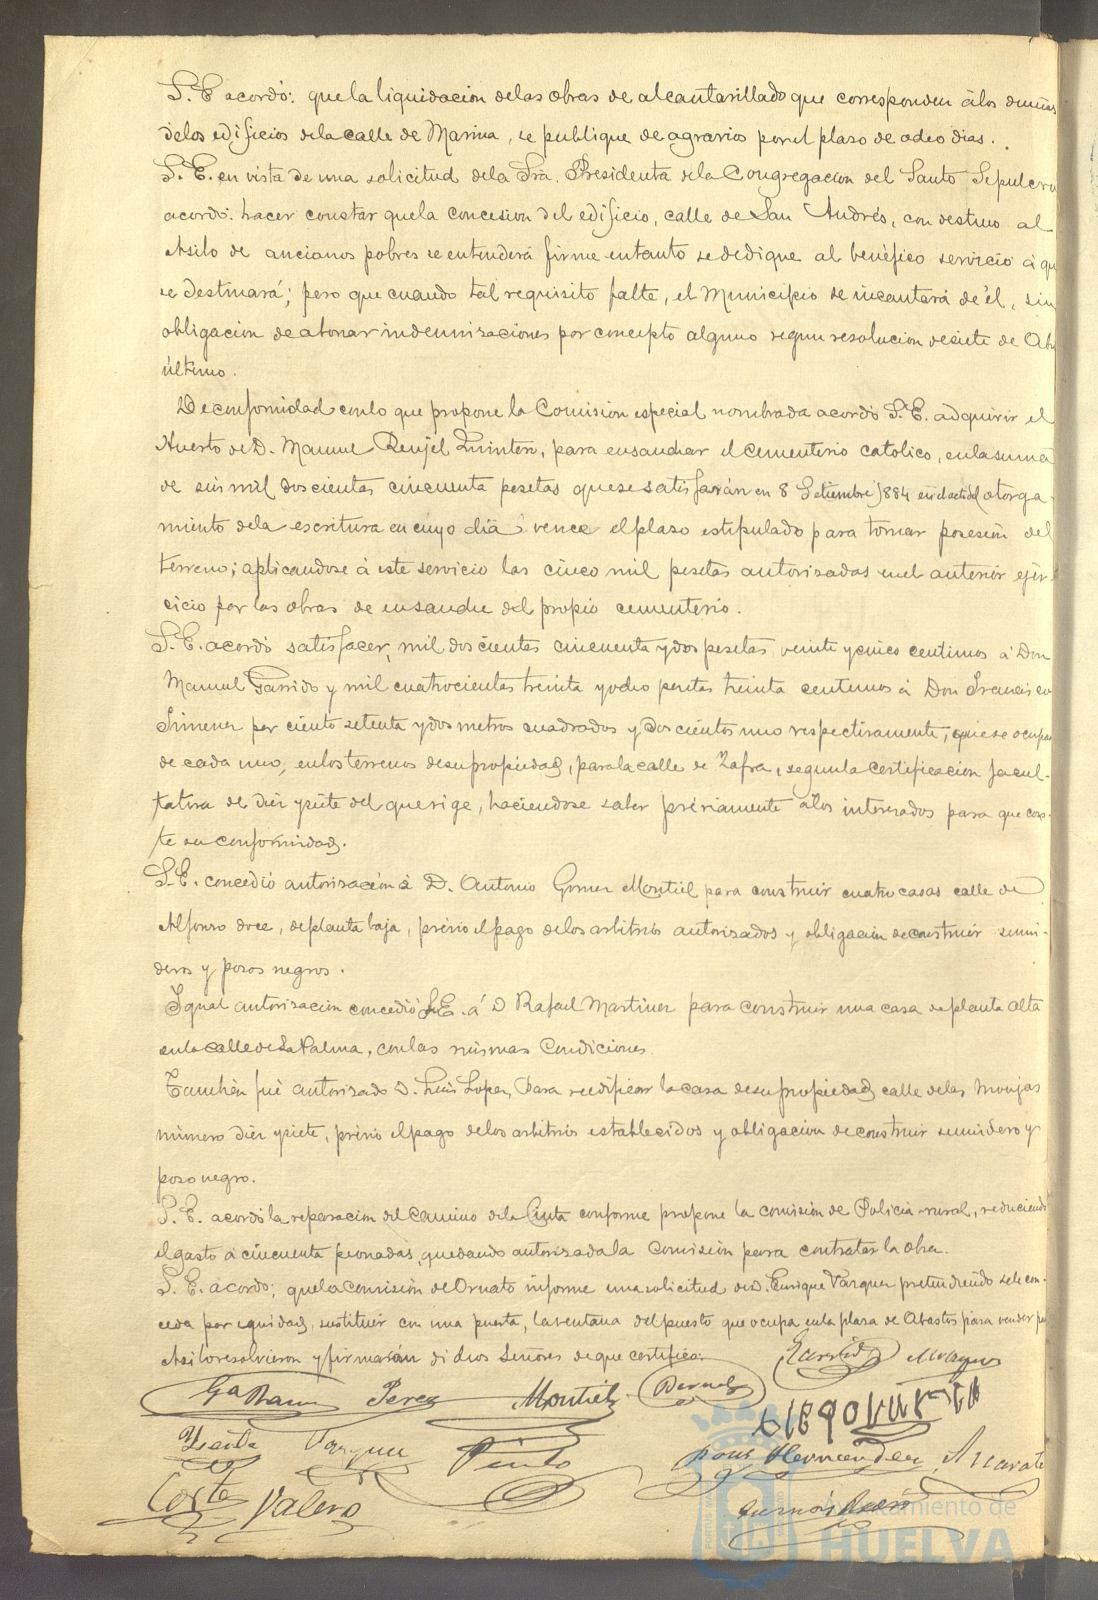 S.E. acordó: que la liquidacion delas obras de alcantarillado que corresponden álos dueños
delos edificios dela calle de Marina, se publique de agravios por el plazo de ocho dias.
S.E. en vista de una solicitud dela Sra. Presidenta dela Congregacion del Santo Sepulcro
acordó: hacer constar quela concesion del edificio, calle de San Andrés, con destino al
Asilo de ancianos pobres se entenderá firme entanto se dedique al benéfico servicio á qu
se destinará; pero que cuando tal requisito falte, el Municipio se incautará de él, sin
obligacion de abonar indemnizaciones por concepto alguno segun resolucion de siete de Ab
último.
De conformidad conlo que propone la Comision especial nombrada acordó S.E. adquirir el
Huerto de D. Manuel Renjel Quintero, para ensanchar el cementerio católico, enla suma
de seis mil doscientas cincuenta pesetas que se satisfarán en 8 Setiembre 1884 otorga-
miento dela escritura en cuyo dia vence el plazo estipulado para tomar posesión del
terreno; aplicandose á este servicio las cinco mil pesetas autorizadas enel anterior ejer-
cicio por las obras de ensanche del propio cementerio.
S.E. acordó satisfacer, mil doscientas cincuenta y dos pesetas veinte y cinco centimos á Don
Manuel Garrido y mil cuatrocientas treinta y ocho pesetas treinta centimos á Don Francisco
Jimenez por ciento setenta y dos metros cuadrados y doscientos uno respectivamente, que se ocupan
de cada uno, enlos terrenos desu propiedad, parala calle de Zafra, segunla certificacion facul-
tativa de diez y siete del que rige, haciendose saber préviamente álos interesados para que cons-
te su conformidad.
S.E. concedió autorización á D. Antonio Gomez Montiel para construir cuatro casas calle de
Alfonso doce, de planta baja, prévio el pago delos arbitrios autorizados y obligación de construir sumi-
deros y pozos negros.
Igual autorizacion concedió S.E. á D Rafael Martinez para construir una casa de planta alta
enla calle de La Palma, conlas mismas Condiciones.
Tambien fué autorizado D. Luis Lopez, para reedificar la casa desu propiedad calle delas Monjas
número diez y siete, prévio el pago delos arbitrios establecidos y obligacion de construir sumidero y
pozo negro.
S.E. acordó la reparacion del Camino dela Cinta conforme propone la comisión de Policia rural, reduciendo
el gasto á cincuenta peonadas, quedando autorizada la Comision para contratar la obra.
S.E. acordó; quela Comisión de Ornato informe una solicitud de D. Enrique Vazquez pretendiendo sele con-
ceda por equidad, sustituir con una puerta, la ventana del puesto que ocupa enla plaza de Abastos para vender
Asi lo resolvieron y firmarán dichos Señores de que certifico.
Garcia Perez Montiel Bernal
Vazquez Pinto Hernandez Azcarate
Corte Valero
PORTUS
Ayuntamiento de
HUELVA